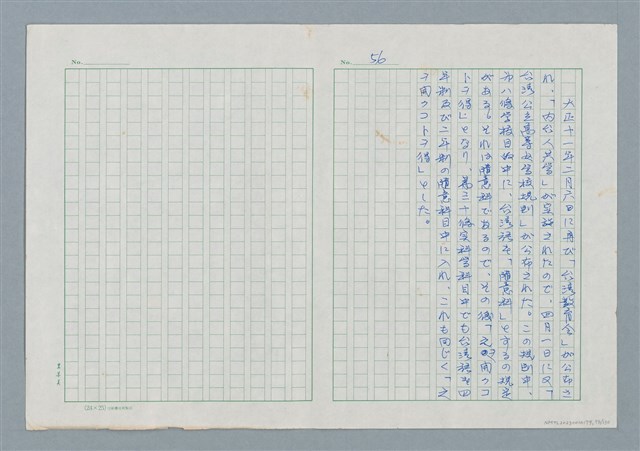 No. 56
大正十一年二月六日に再び「台湾教育令」が公布さ
れ、「内台人共学」が実施されたので、四月一日に又「
台湾公立高等女学校規則」が公布された。この規則中、
第八條学校目中に、台湾語を「随意科」とするの規定
がある。それは随意科であるので、その後「之ヲ闕クコ
トヲ得」となり、第三十條実科学科目中でも台湾語を四
年制及び二年制の随意科目中に入れ、これも同じく「之
ヲ闕クコトヲ得」とした。
No.
(24×25)